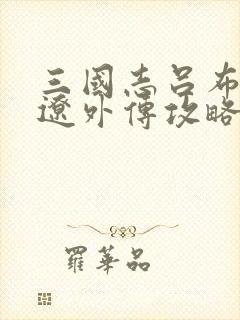 三國志呂布
遼外傳攻略
羅華品